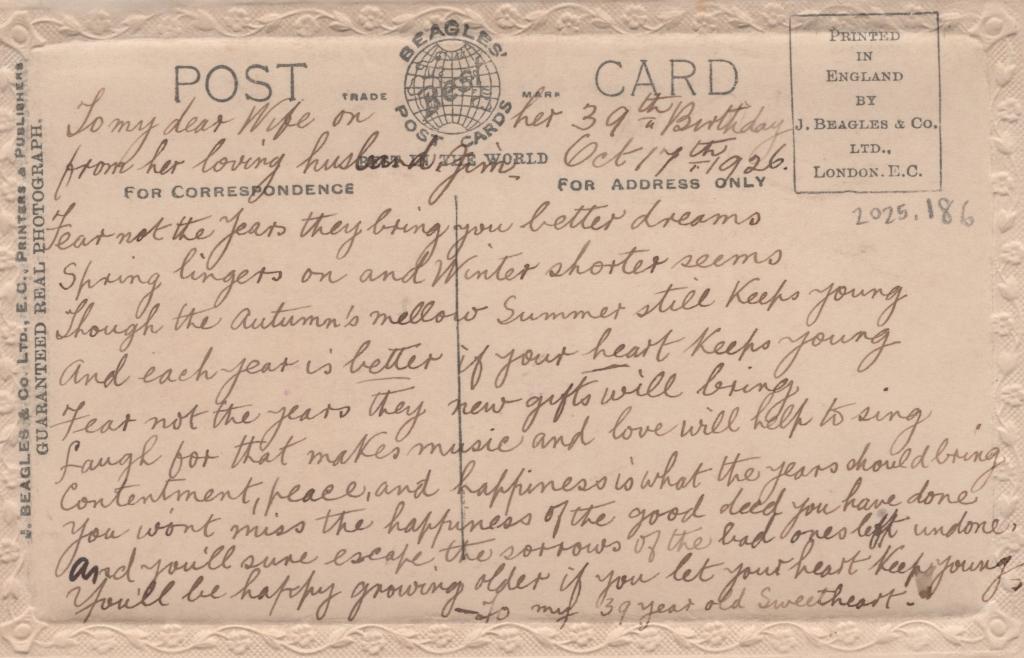 BEAGLES'
POST CARD
TRADE MARK
BEST
POST CARDS
BEST IN THE WORLD
FOR CORRESPONDENCE
FOR ADDRESS ONLY
PRINTED
IN
ENGLAND
BY
J. BEAGLES & CO.
LTD.,
LONDON. E.C.
J. BEAGLES & CO. LTD., E.C., PRINTERS & PUBLISHERS
GUARANTEED REAL PHOTOGRAPH.
2025.186
To my dear Wife on her 39th Birthday
from her loving husband. Jim. Oct 17th 1926.
Fear not the Years they bring you better dreams
Spring lingers on and Winter shorter seems
Though the Autumn's mellow Summer still Keeps young
And each year is better if your heart Keeps young
Fear not the years they new gifts will bring
Laugh for that makes music and love will help to sing
Contentment, peace, and happiness is what the years should bring
You won't miss the happiness of the good deed you have done
and you'll sure escape the sorrows of the bad ones left undone.
You'll be happy growing older if you let your heart Keep young
To my 39 year old Sweetheart.